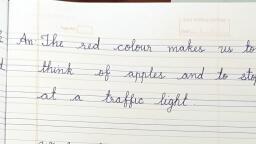 An The red colour makes us to
think of apples and to stop
at a traffic light.